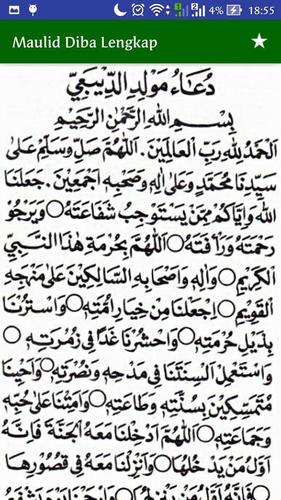 4% 18:55
Maulid Diba Lengkap
دُعَاءُ مَوْلِدِ الدِّيْبَعِيِّ
بِسْمِ اللهِ الرَّحْمٰنِ الرَّحِيْمِ
اَلْحَمْدُ لِلّٰهِ رَبِّ الْعَالَمِيْنَ. اَللّٰهُمَّ صَلِّ وَسَلِّمْ عَلٰى
سَيِّدِنَا مُحَمَّدٍ وَعَلٰى اٰلِهِ وَصَحْبِهِ اَجْمَعِيْنَ. جَعَلَنَا
اللهُ وَاِيَّاكُمْ مِمَّنْ يَسْتَوْجِبُ شَفَاعَتَهُ ○ وَيَرْجُوْ
رَحْمَتَهُ وَرَأْفَتَهُ ○ اَللّٰهُمَّ بِحُرْمَةِ هٰذَا النَّبِيِّ
الْكَرِيْمِ ○ وَاٰلِهِ وَاَصْحَابِهِ السَّالِكِيْنَ عَلٰى مَنْهَجِهِ
الْقَوِيْمِ ○ اِجْعَلْنَا مِنْ خِيَارِ اُمَّتِهِ ○ وَاسْتُرْنَا
بِذَيْلِ حُرْمَتِهِ ○ وَاحْشُرْنَا غَدًا فِيْ زُمْرَتِهِ ○
وَاسْتَعْمِلْ اَلْسِنَتَنَا فِيْ مَدْحِهِ وَنُصْرَتِهِ ○ وَاَحْيِنَا
مُتَمَسِّكِيْنَ بِسُنَّتِهِ وَطَاعَتِهِ ○ وَاَمِتْنَا عَلٰى حُبِّهِ
وَجَمَاعَتِهِ ○ اَللّٰهُمَّ اَدْخِلْنَا مَعَهُ الْجَنَّةَ فَاِنَّهُ
اَوَّلُ مَنْ يَدْخُلُهَا ○ وَاَنْزِلْنَا مَعَهُ فِيْ قُصُوْرِهَا